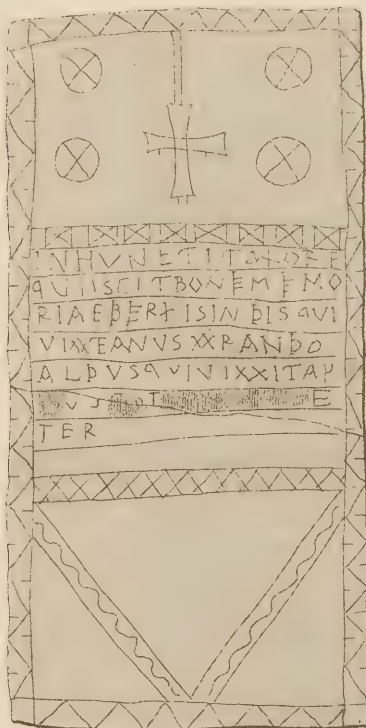 INHVNETIT OEE
QVIISCITBONEMEMO
RIAEBERTISINDISQVI
VIXXEANVSXXRANDO
ALDVSQVIVIXXITAN
VS T E
TER